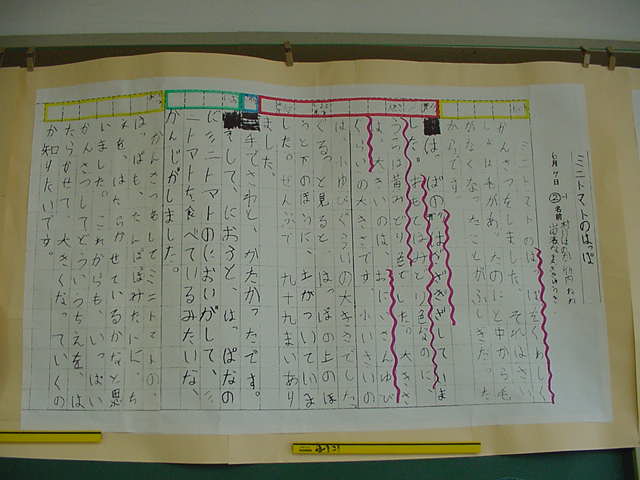 ミニトマトのはっぱ
6月7日
ミニトマトのはっぱをくわしく
かんさつをしました。それはさい
しょは毛があったのにと中から毛
がなくなったことがふしぎだった
からです。
はっぱの先はぎざぎざしていま
した。おもてはみどり色なのに、
うらは黄みどり色でした。大きさ
は、大きいのは、おにいさんゆび
くらいの大きさです。小さいの
は、小ゆびぐらいの大きさでした。
ぐるっと見ると、はっぱの上のほ
うと下のほうに、土がついていま
した。ぜんぶで、九十九まいあり
ました。
手でさわると、かたかったです。
そして、におうと、はっぱなの
にミニトマトのにおいがして、ミ
ニトマトを食べているみたいな、
かんじがしました。
かんさつをしてミニトマトの、
はっぱも、たんぽぽみたいに、ち
えを、はたらかせているかなと思
いました。これからも、いっぱい
かんさつしてどういうちえを、は
たらかせて大きくなっていくの
か知りたいです。